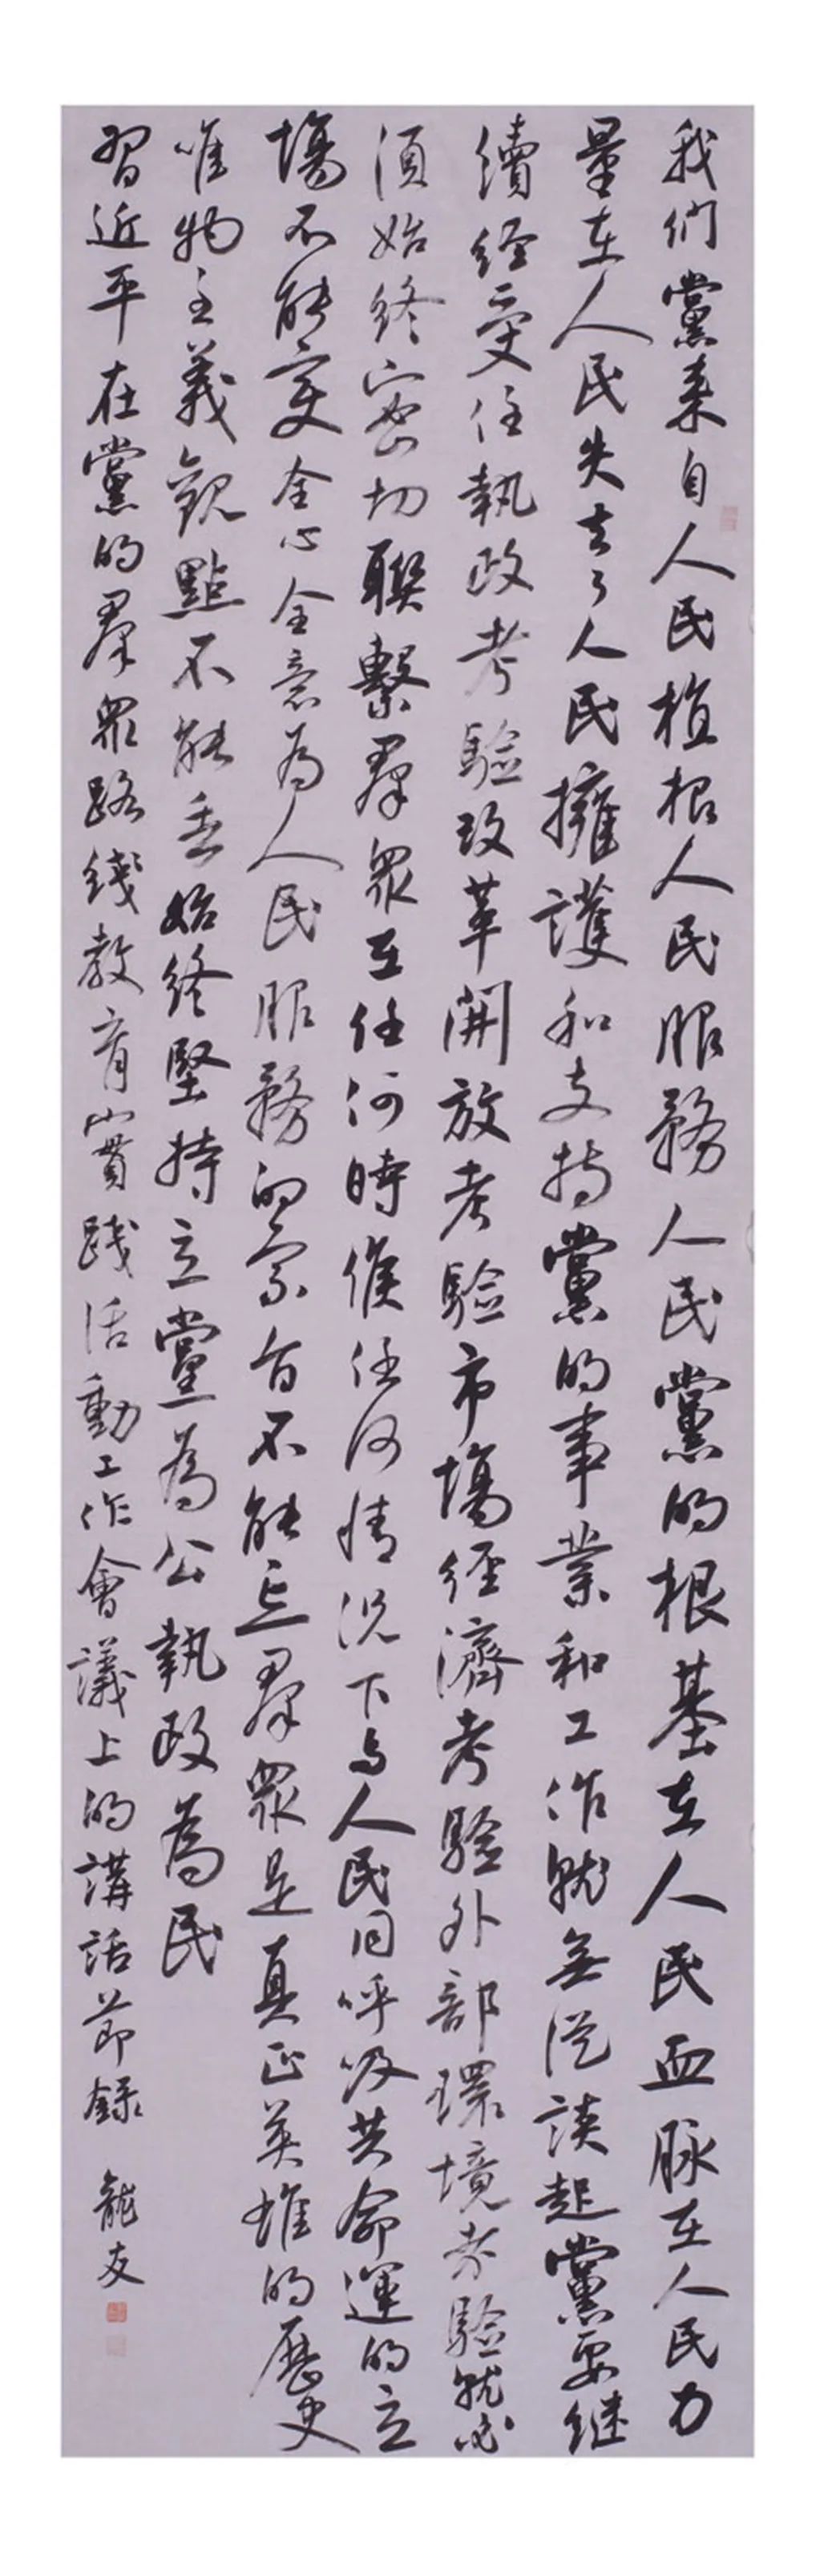 我们黨来自人民植根人民服務人民黨的根基在人民血脉在人民力
量在人民失去了人民擁護和支持黨的事業和工作就無從談起黨要继
續经受住執政考驗改革開放考驗市場經濟考驗外部環境考驗就必
須始終密切聯繫群眾在任何時候任何情况下与人民同呼吸共命運的立
場不能变全心全意為人民服務的宗旨不能忘群眾是真正英雄的歷史
唯物主義觀點不能丢始终堅持立黨為公執政為民
習近平在黨的群眾路线教育實践活動工作會議上的講話節錄 龍友